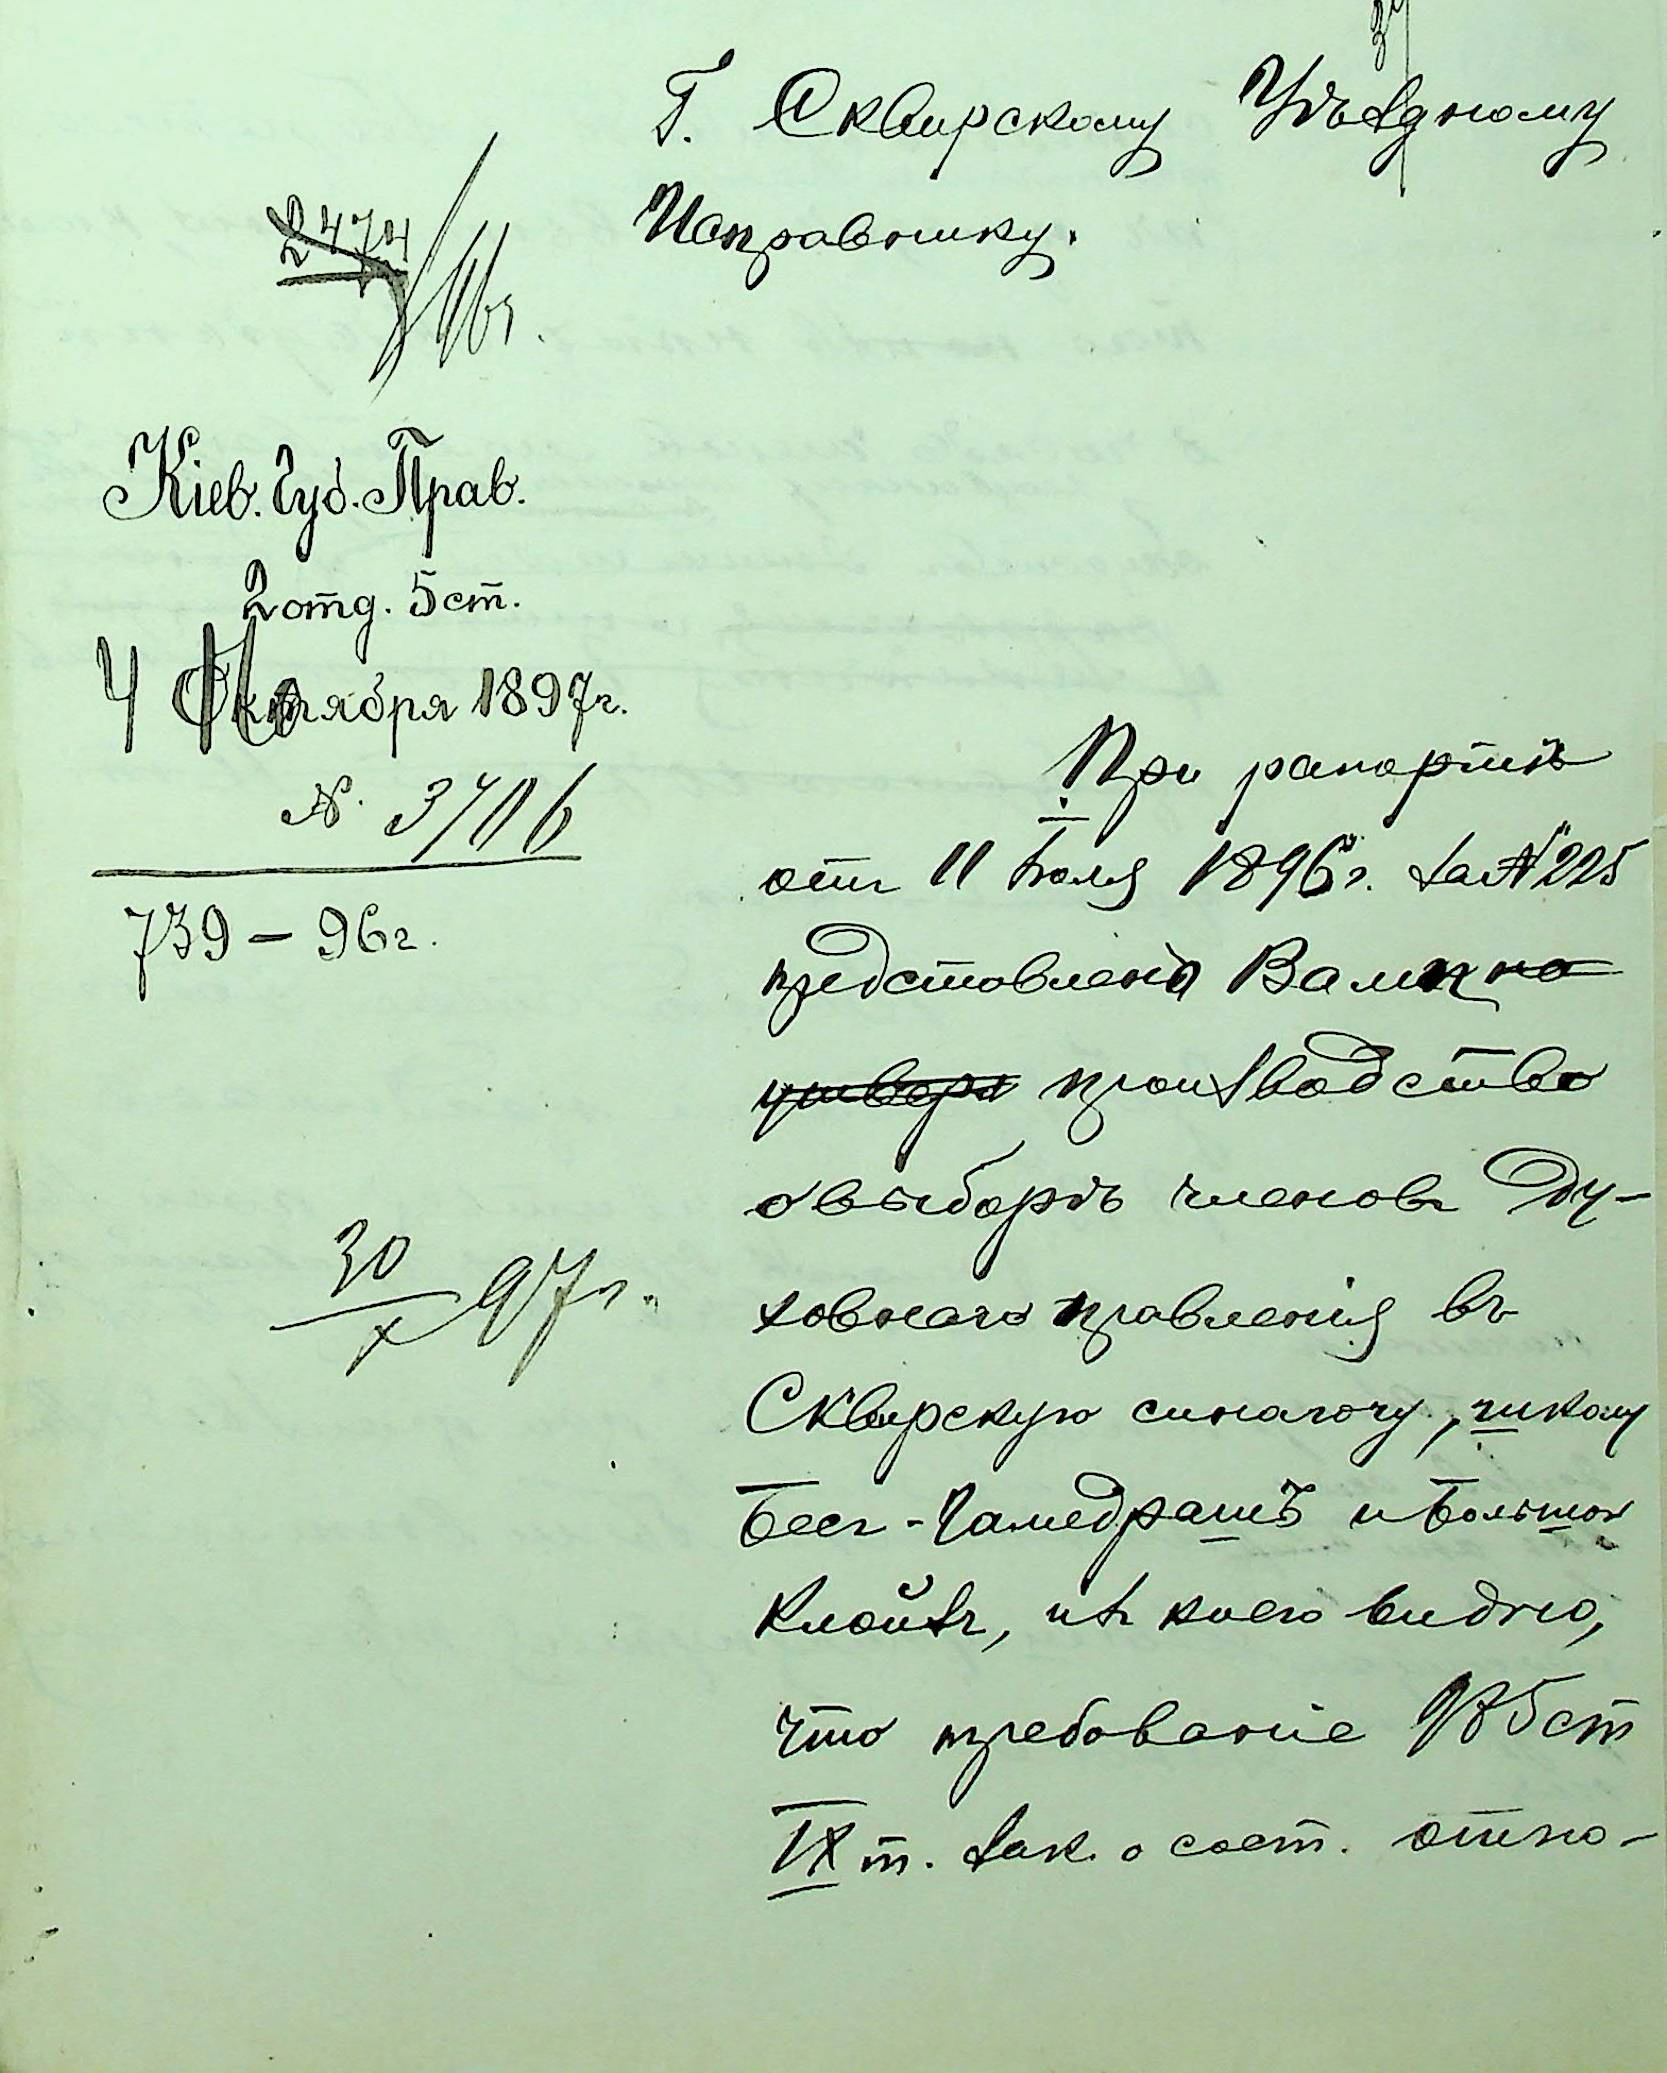 34
Г. Сквирскому Уѣздному
Исправнику.
2474
96 г.
Кіев. Губ. Прав.
2 отд. 5 ст.
4 Но ября 1897 г.
№. 3706
739 – 96 г.
30/X 97 г.
При рапортѣ
отъ 11 Іюля 1896 г. за № 225
представлено Вами на
утвер произвoдство
о выборѣ членовъ Ду-
ховнаго правленія въ
Сквирскую синагогу, школу
Бесъ-Гамедрашъ и Большой
Клойзъ, изъ коего видно,
что требованіе ст
IX т. Зак. о сост. отно-